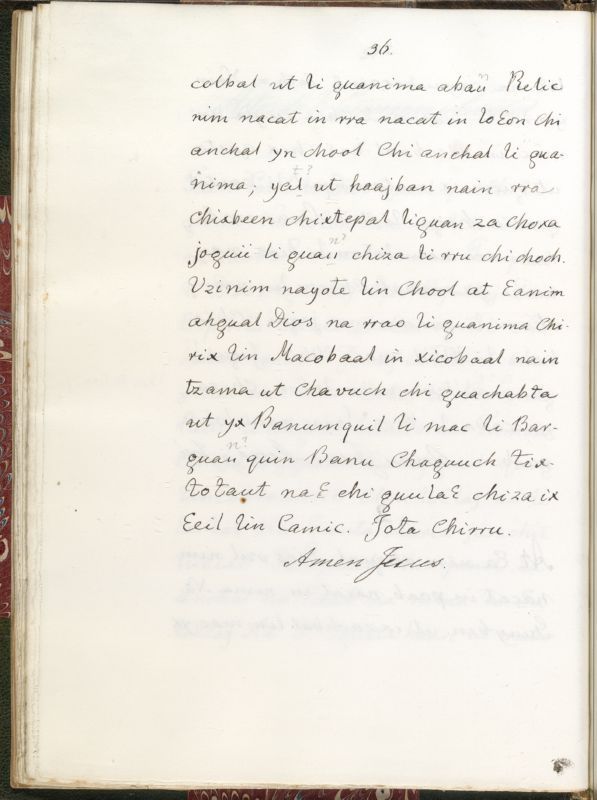 36.
colbal ut li quanima abaũ Relic
nim nacat in rra nacat in loεon chi
anchal yn chool Chi anchal li qua-
nima; yal ut haajban nain rra
chixbeen chixtepal liquan za choxa
joquii li quaũ chiza li rru chi choch.
Uzinim nayote lin Chool at Eanim
ahqual Dios na rrao li quanima Chi-
rix lin Macobaal in xicobaal nain
tzama ut Chavuch chi quachabta
ut yx Banumquil li mac li Bar-
quaũ quin Banu Chaquuch tix-
totaut naε chi quulaε chiza ix
Eeil lin Camic. Jota Chirru.
Amen Jesus.